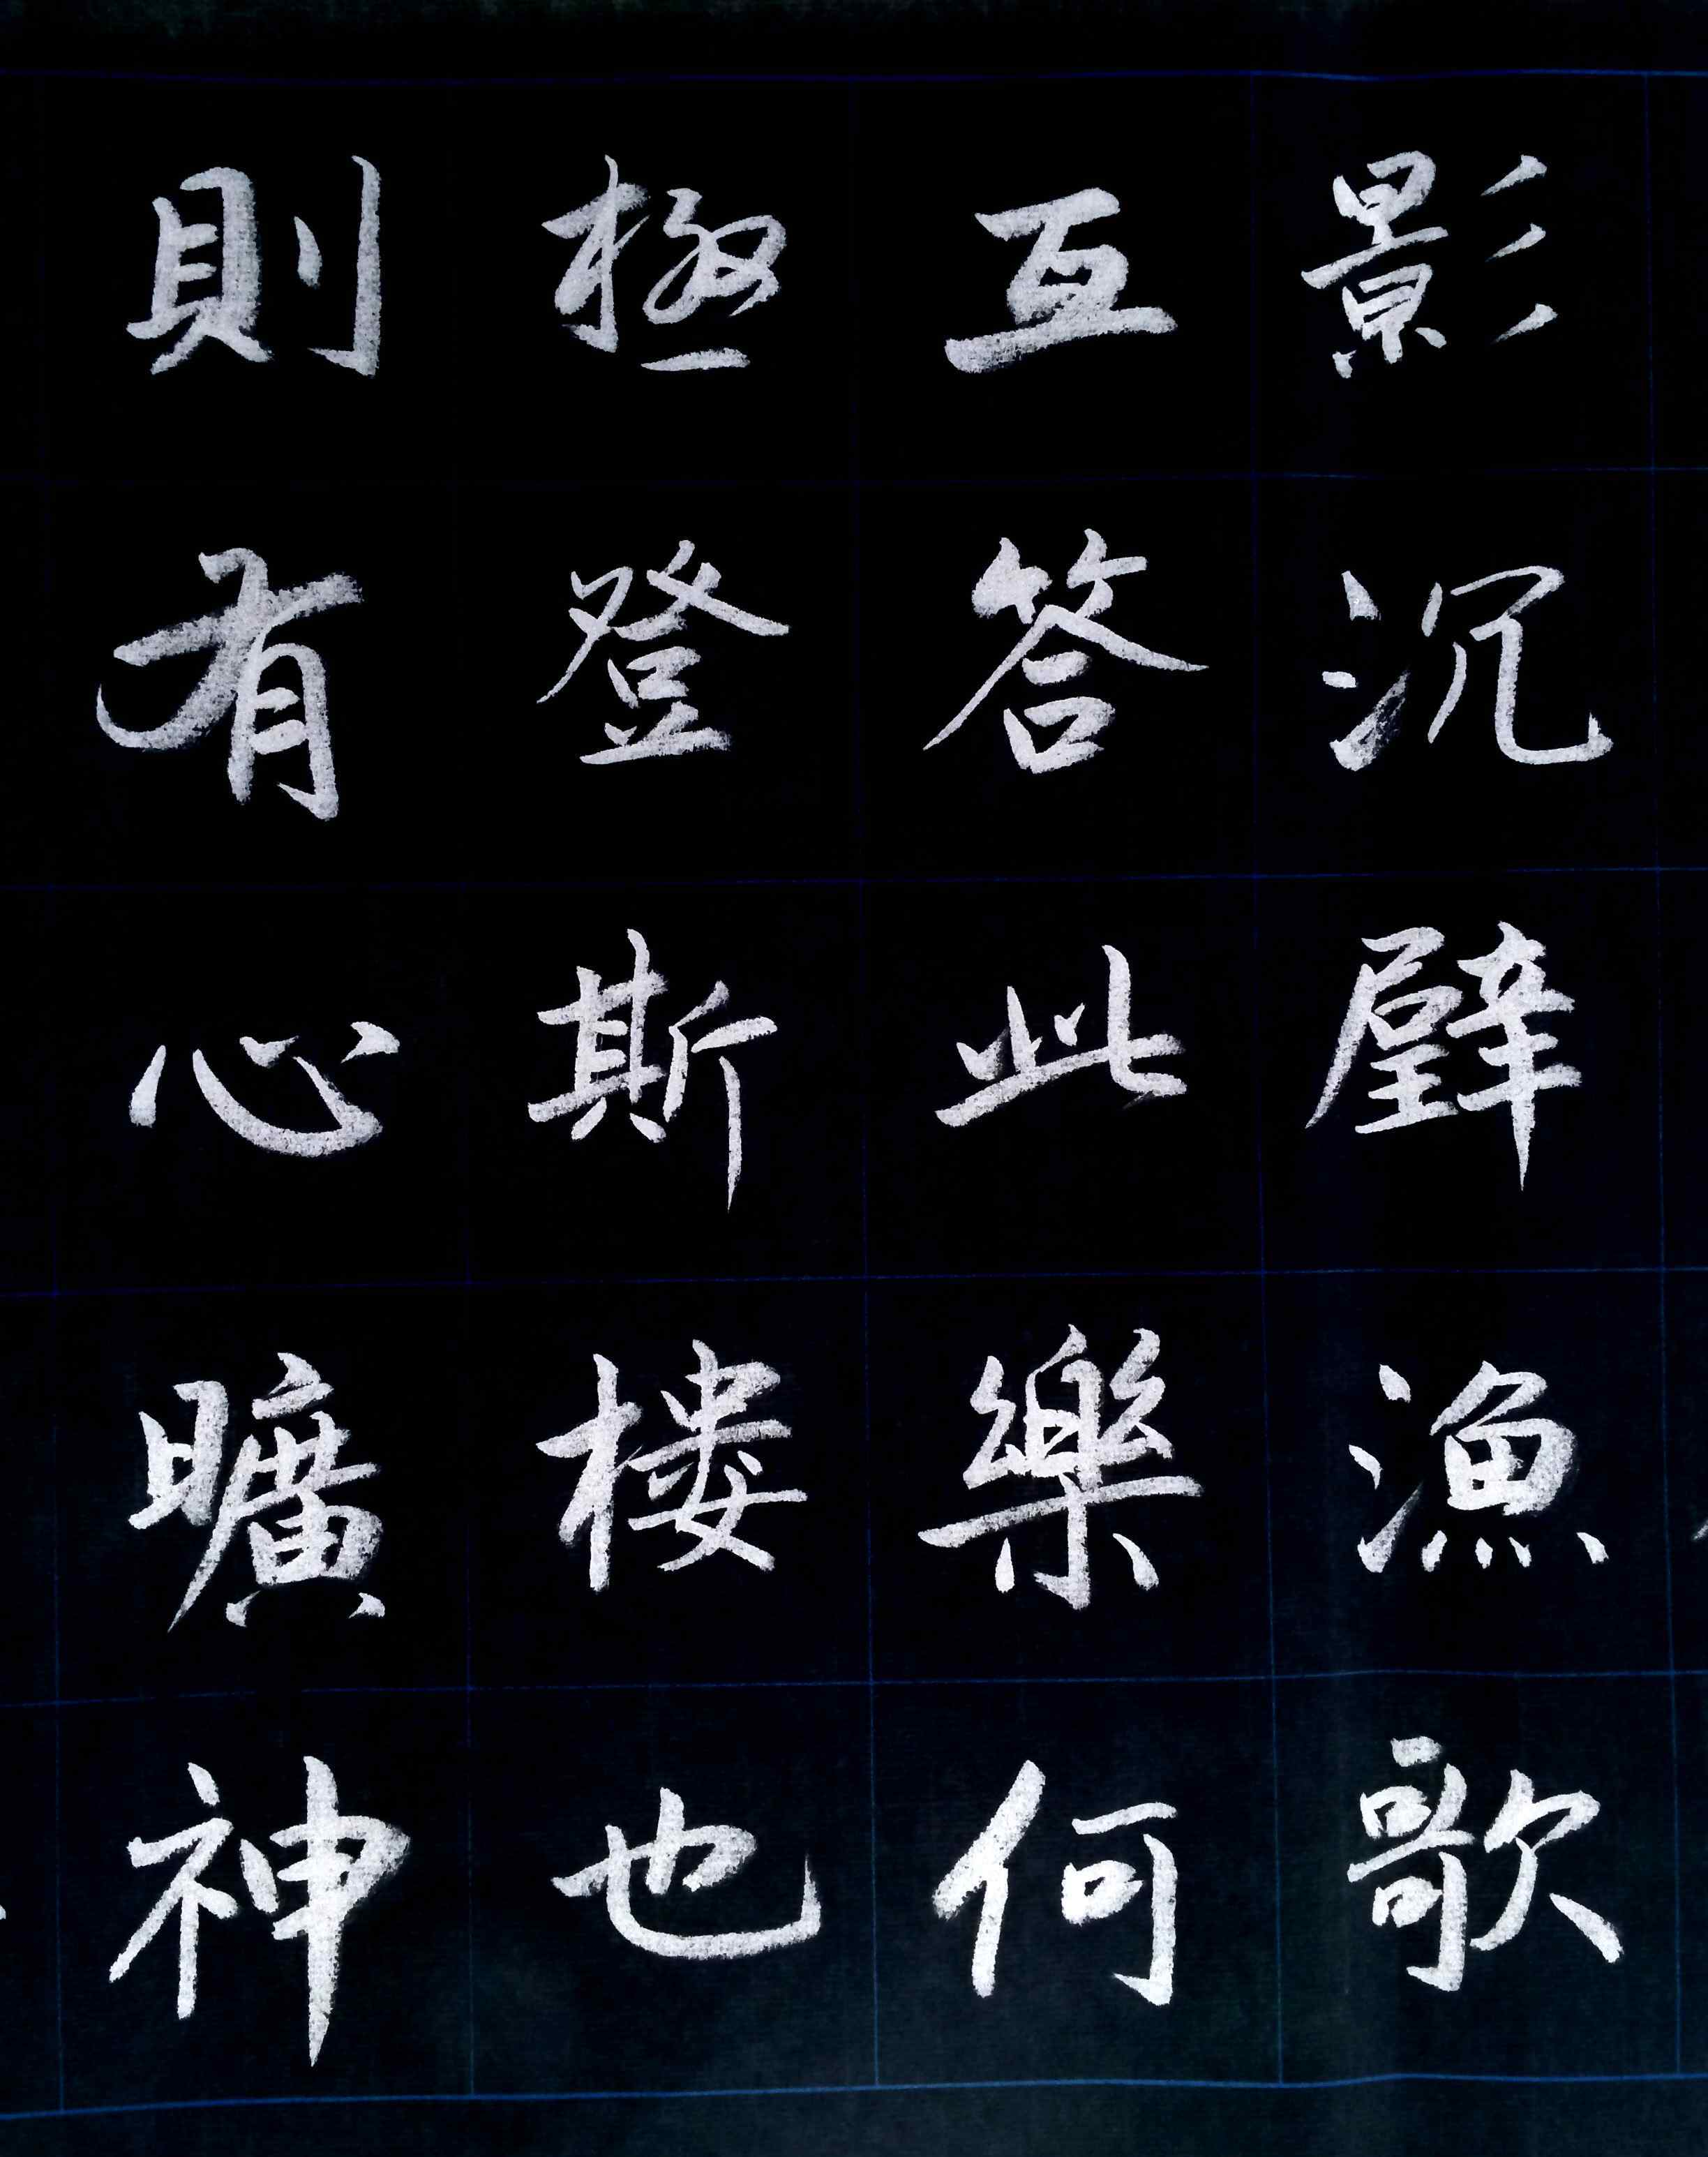 影沉璧漁歌
互答此樂何
極登斯樓也
則有心曠神